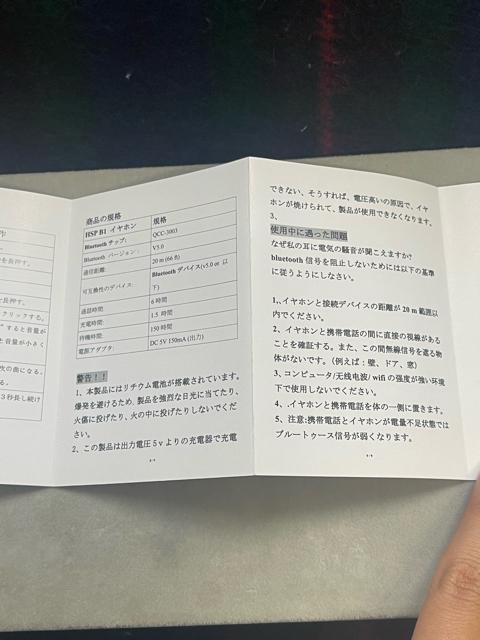 を長押し。
長押し。
クリックする。
"すると音量が
と音量が小さく
次の曲になる。
る。
3秒長し続け
商品の規格
HSP B1 イヤホン 規格
Bluetooth チップ: QCC-3003
Bluetooth バージョン: V5.0
通信距離: 20 m (66 ft)
可互換性のデバイス: Bluetooth デバイス(v5.0 or 以下)
通話時間: 6 時間
充電時間: 1.5 時間
待機時間: 150 時間
電源アダプタ: DC 5V 150mA (出力)
警告!!
1、本製品にはリチウム電池が搭載されています。
爆発を避けるため、製品を強烈な日光に当てたり、
火傷に投げたり、火の中に投げたりしないでくだ
さい。
2、この製品は出力電圧5vよりの充電器で充電
できない、そうすれば、電圧高いの原因で、イヤ
ホンが焼けられて、製品が使用できなくなります。
3、
使用中に遇った問題
なぜ私の耳に電気の騒音が聞こえますか?
bluetooth 信号を阻止しないためには以下の基準
に従うようにしなさい。
1,、イヤホンと接続デバイスの距離が 20 m 範囲以
内でください。
2、イヤホンと携帯電話の間に直接の視線がある
ことを確証する。また、この間無線信号を遮る物
体がないです。(例えば:壁、ドア、窓)
3、コンピュータ/无线电波/ wifi の強度が強い環境
下で使用しないでください。
4、.イヤホンと携帯電話を体の一側に置きます。
5、注意:携帯電話とイヤホンが電量不足状態では
ブルートゥース信号が弱くなります。